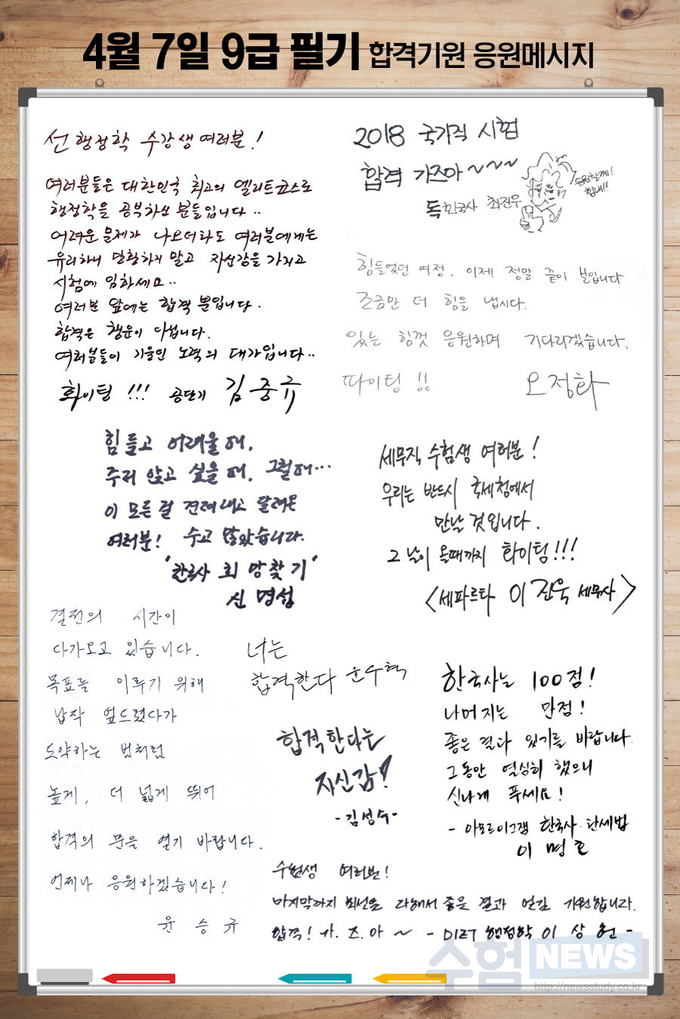 4월 7일 9급 필기 합격기원 응원메시지
선행정학 수강생 여러분!
여러분들은 대한민국 최고의 엘리트코스로
행정학을 공부하신 분들입니다..
어려운 문제가 나오더라도 여러분에게는
유리하니 당황하지 말고 자신감을 가지고
시험에 임하세요..
여러분 앞에는 합격 뿐입니다.
합격은 행운이 아닙니다.
여러분들이 기울인 노력의 대가입니다..
화이팅 !!! 공단기 김중규
2018 국가직 시험
합격 가즈아~~~
독한국사 최진우
수험생 힘내!!
힘들었던 여정. 이제 정말 끝이 보입니다
조금만 더 힘을 냅시다.
있는 힘껏 응원하며 기다리겠습니다.
파이팅 !! 오정화
힘들고 어려울 때,
주저 앉고 싶을 때, 그럴때...
이 모든걸 견뎌내고 달려온
여러분! 수고 많았습니다.
'한국사 희망찾기'
신명섭
세무직 수험생 여러분!
우리는 반드시 국세청에서
만날 것입니다.
그 날이 올때까지 화이팅!!!
<세파르타 이진욱 세무사>
결전의 시간이
다가오고 있습니다.
목표를 이루기 위해
납작 엎드렸다가
도약하는 범처럼
높게, 더 넓게 뛰어
합격의 문을 열기 바랍니다.
언제나 응원하겠습니다!
윤승규
너는
합격한다 손수혁
합격한다는
자신감!
-김성수-
한국사는 100점!
나머지는 만점!
좋은 결과 있기를 바랍니다.
그동안 열심히 했으니
신나게 푸세요!
- 아모르이그잼 한국사 탄세법
이명호
수험생 여러분!
마지막까지 최선을 다해서 좋은 결과 얻길 기원합니다.
합격! 가.즈.아~ - DIET 행정학 이상헌 -
수험NEWS
http://newsstudy.co.kr